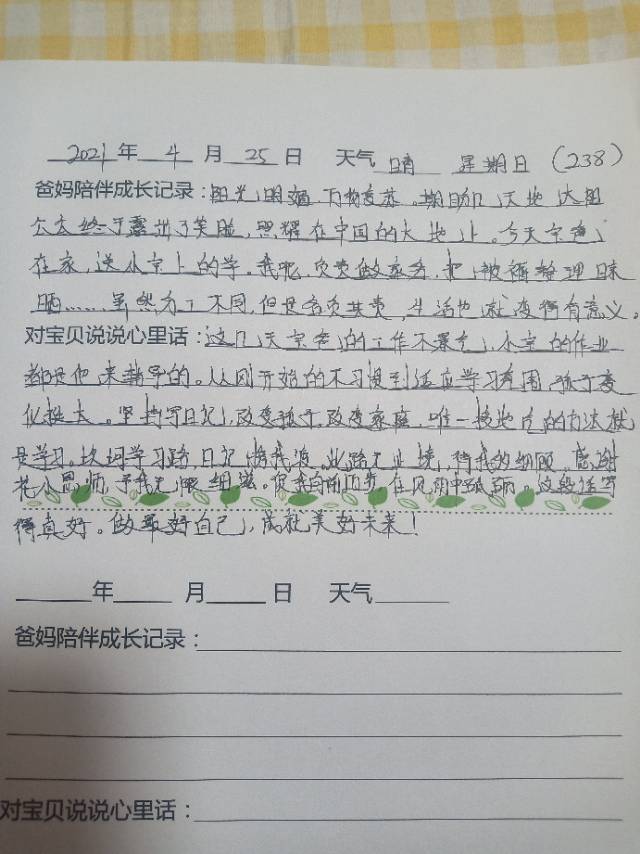 2021年 4 月 25 日 天气 晴 星期日 (238)
爸妈陪伴成长记录：阳光明媚,万物复苏。期盼几天地 太阳
公公终于露出了笑脸,照耀在中国的大地上。今天宗爸
在家,送从宗上的学。我呢,负责做家务,把被褥整理晾
晒……虽然分工不同,但是各负其责,生活也就变得有意义。
对宝贝说说心里话：这几天宗爸的工作不累,宗的作业
都是他来辅导的。从刚开始的不习惯到适应学习氛围,孩子变
化挺大。坚持写日记,改变孩子,改变家庭,唯一接地气的方法就
是学习。坎坷学习路,日记携我渡。此路无止境,待我效细顾,感谢
花儿高师,予我无限细滋。促我向前迈步,在风雨中砥砺。这段话写
得真好。做最好自己,成就美好未来!
年 月 日 天气
爸妈陪伴成长记录：
对宝贝说说心里话：